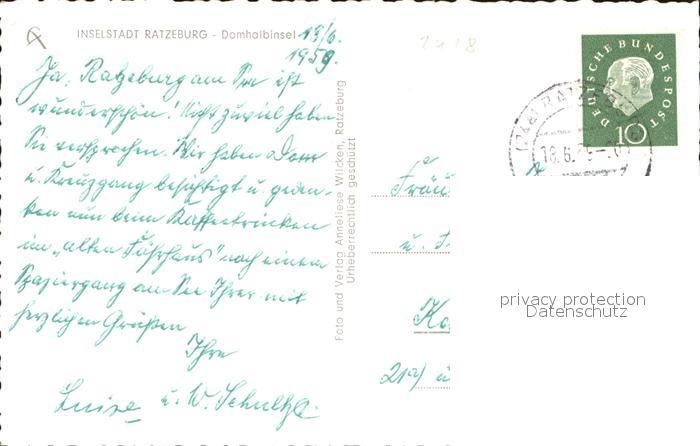 INSELSTADT RATZEBURG - Domhalbinsel 13/6.
1959.
Ja, Ratzeburg am See ist
wunderschön! Nicht zuviel haben
Sie versprochen. Wir haben Dom
u. Kreuzgang besichtigt u. geden-
ken nun beim Kaffeetrinken
im „alten Fährhaus" nach einem
Spaziergang am See Ihrer mit
herzlichen Grüßen
Ihre
Luise u. W. Schultze.
Foto und Verlag Anneliese Wilcken, Ratzeburg
Urheberrechtlich geschützt
DEUTSCHE BUNDESPOST
10
RATZEBURG
18.6.
Fräu
u.
21a)
privacy protection
Datenschutz